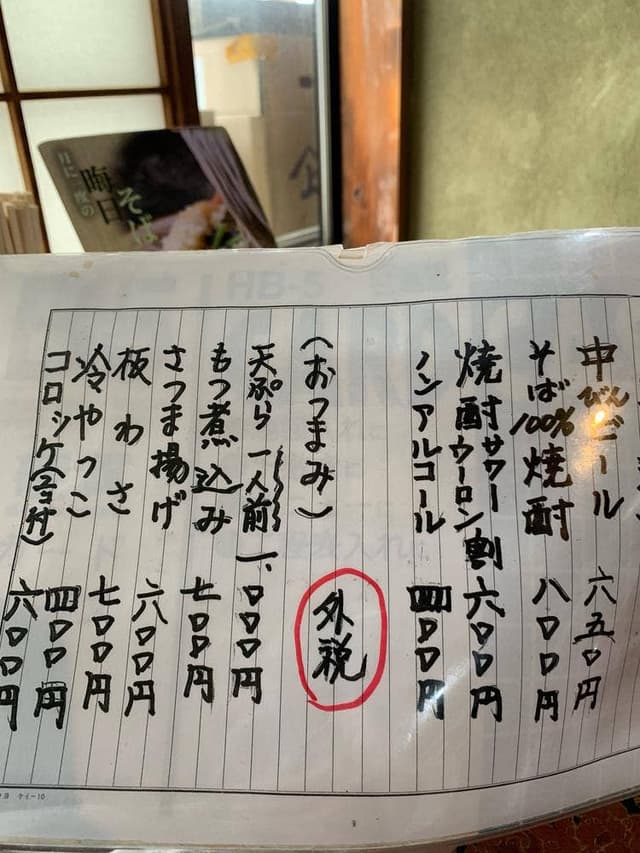 月に一度の
晦日
そば
中びんビール 六五〇円
そば100%焼酎 八〇〇円
焼酎サワーウーロン割 六〇〇円
ノンアルコール 四〇〇円
(おつまみ) 外税
天ぷら一人前 一、〇〇〇円
もつ煮込み 七〇〇円
さつま揚げ 六〇〇円
板わさ 七〇〇円
冷やっこ 四〇〇円
コロッケ 六〇〇円
ケイ-10